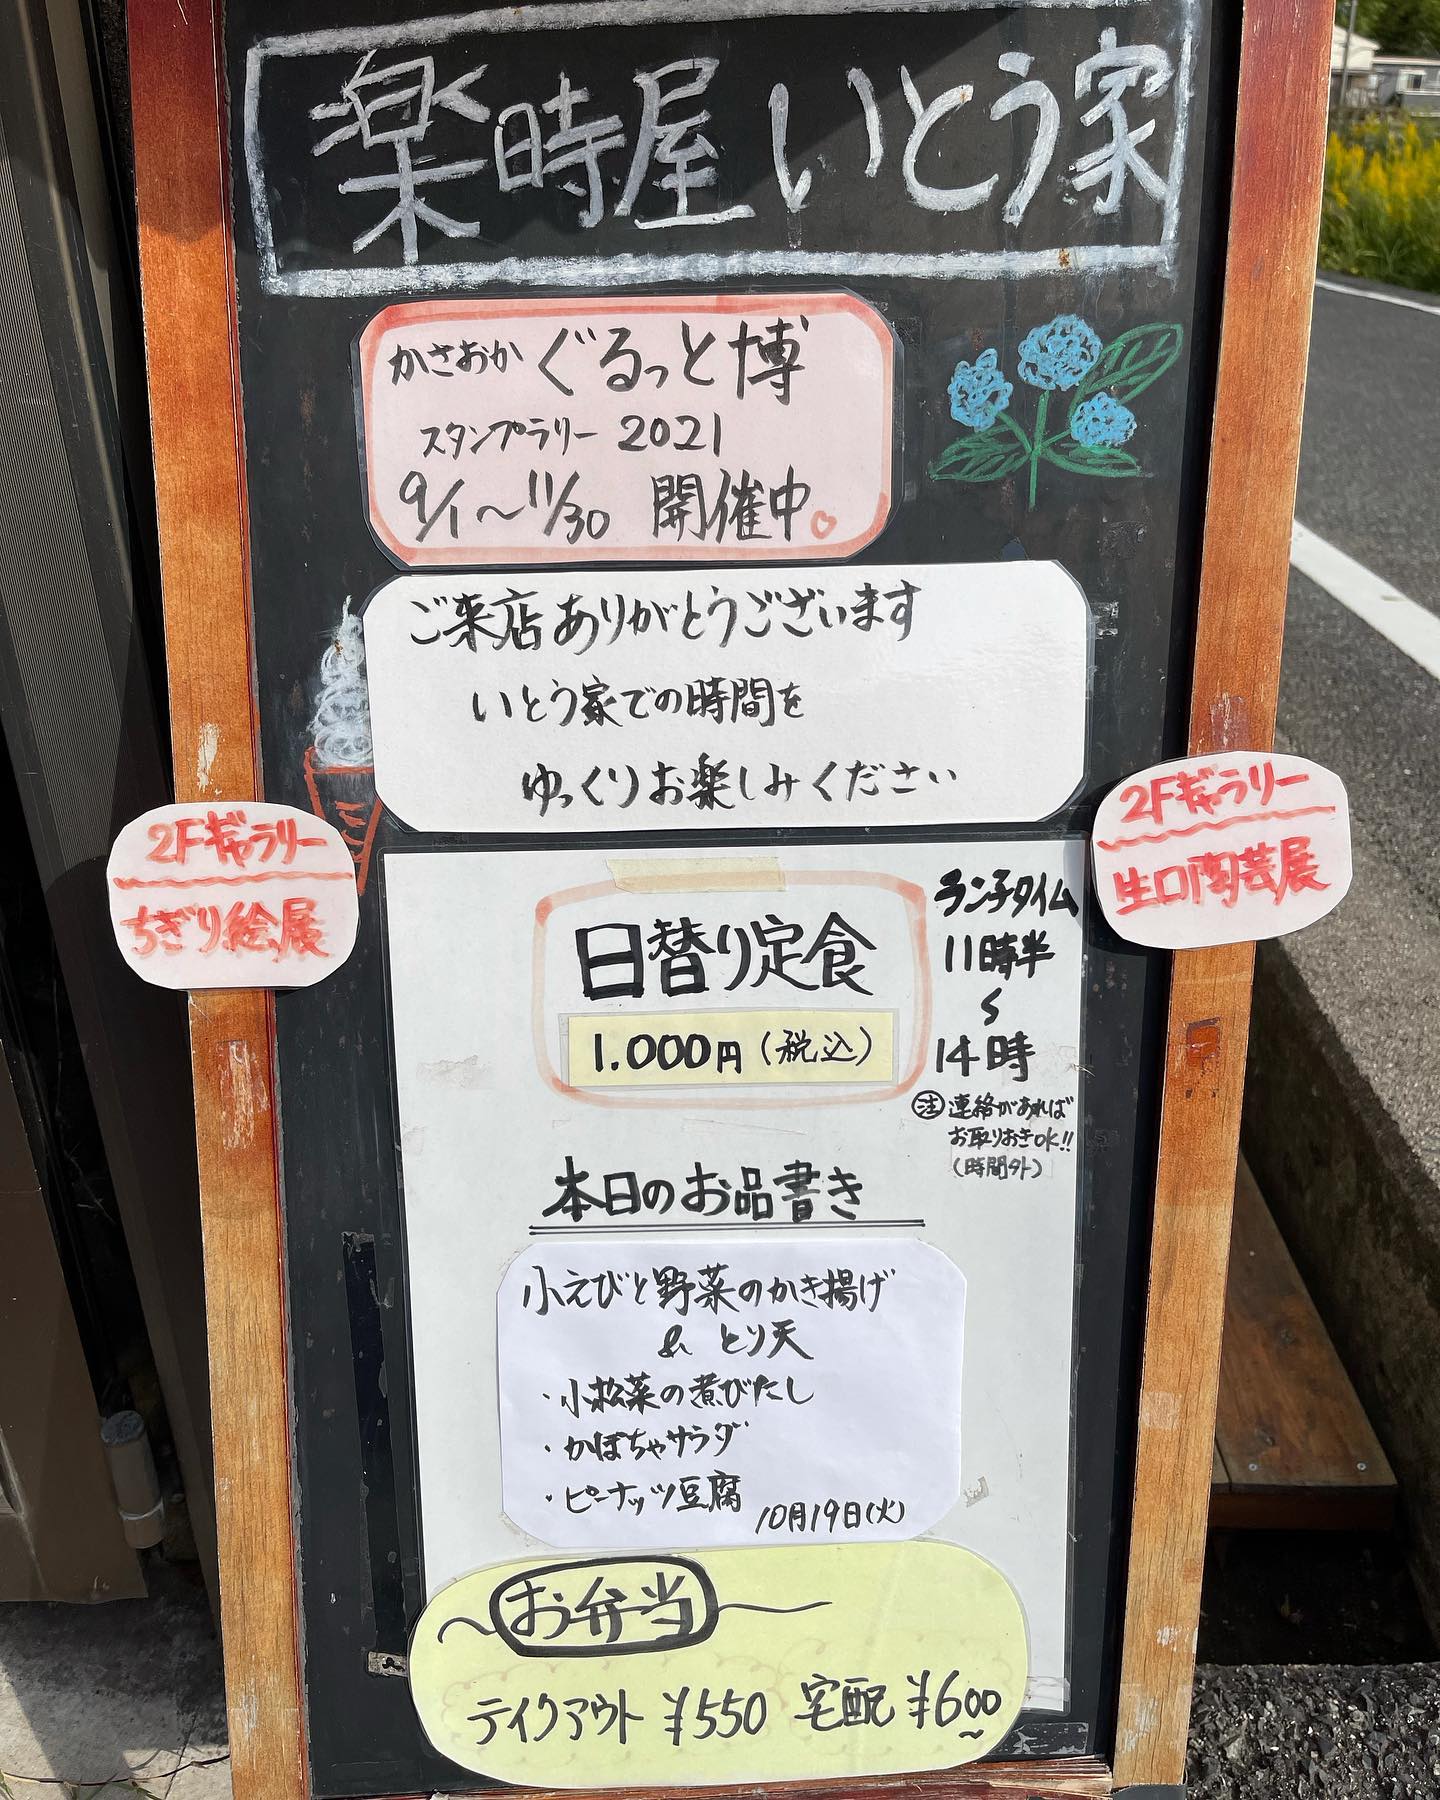 楽時屋 いとう家
かさおか ぐるっと博
スタンプラリー 2021
9/1〜11/30 開催中
ご来店ありがとうございます
いとう家での時間を
ゆっくりお楽しみください
2Fギャラリー
ちぎり絵展
2Fギャラリー
生口陶芸展
日替り定食
1.000円(税込)
ランチタイム
11時半
〜
14時
注 連絡があれば
お取りおきOK!!
(時間外)
本日のお品書き
小えびと野菜のかき揚げ
& とり天
・小松菜の煮びたし
・かぼちゃサラダ
・ピーナッツ豆腐
10月19日(火)
〜お弁当〜
テイクアウト ¥550 宅配 ¥600〜